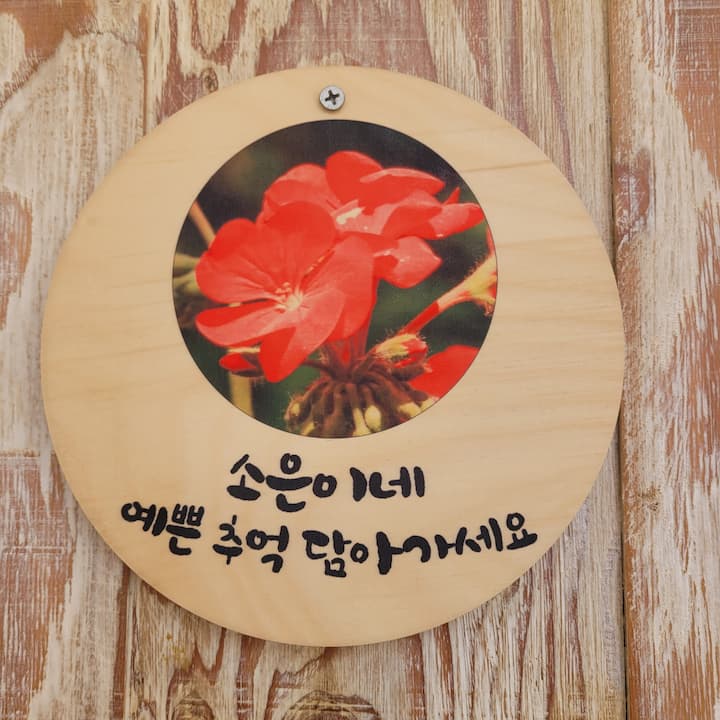 소은이네
예쁜 추억 담아가세요